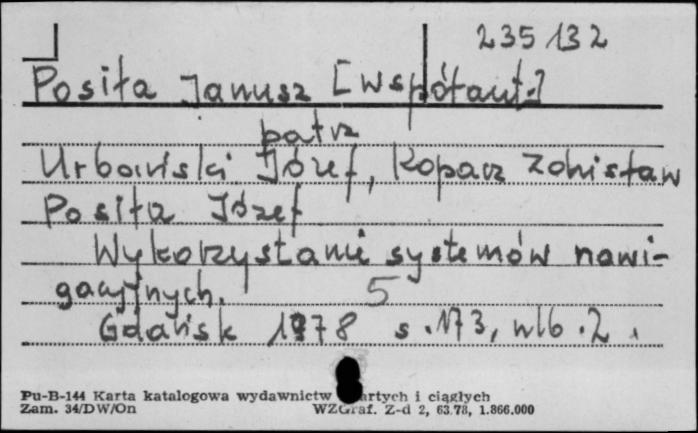 235132
Posiła Janusz [współaut.]
patrz
Urbański Józef, Kopacz Zdzisław
Posiła Józef
Wykorzystanie systemów nawi-
gacyjnych. 5
Gdańsk 1978 s. 173, nlb. 2.
Pu-B-144 Karta katalogowa wydawnictw zwartych i ciągłych
Zam. 34/DW/On WZGraf. Z-d 2, 63.78, 1.866.000